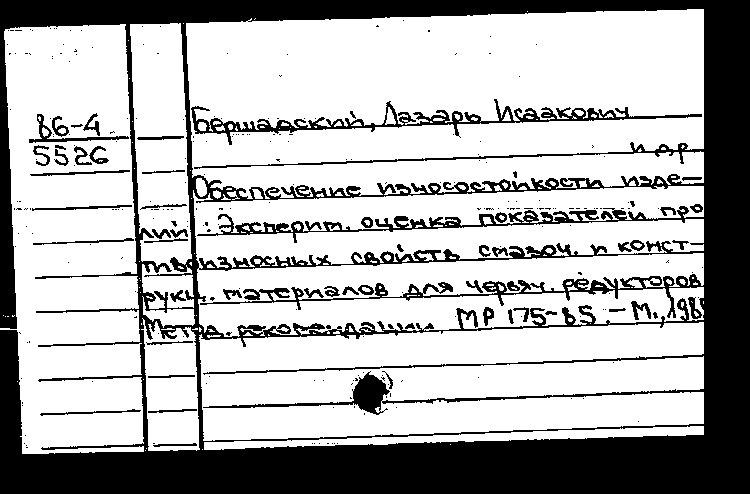 86-4
5526
Бершадский, Лазарь Исаакович
и др
Обеспечение износостойкости изде-
лий : Эксперим. оценка показателей про
тивоизносных свойств смазоч. и конст-
рукц. материалов для червяч. редукторов
Метод. рекомендации МР 175-85. - М., 1985